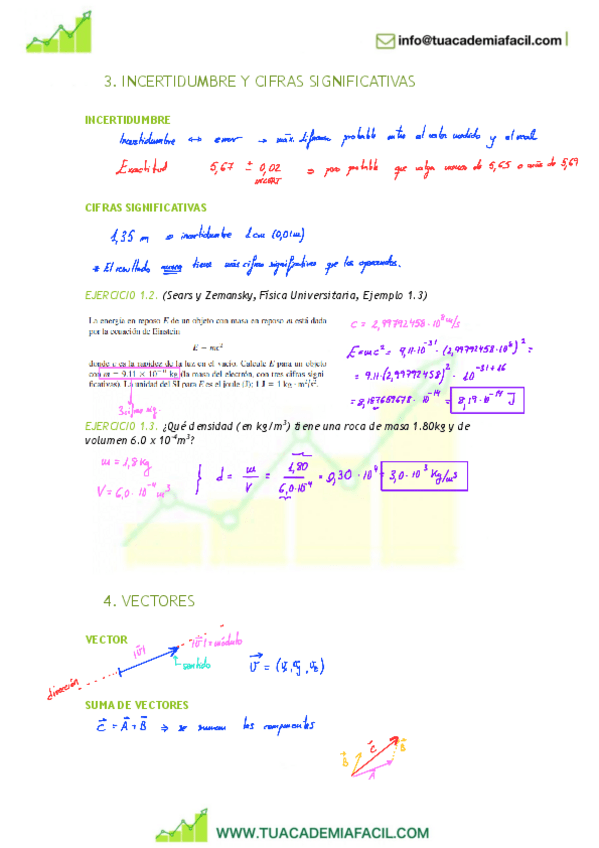 info@tuacademiafacil.com
3. INCERTIDUMBRE Y CIFRAS SIGNIFICATIVAS
INCERTIDUMBRE
Incertidumbre ↔ error → máx. diferencia probable entre el valor medido y el real
Exactitud 5,67 ± 0,02 ⇒ poco probable que valga menos de 5,65 o más de 5,69
INCERT
CIFRAS SIGNIFICATIVAS
1,35 m → incertidumbre 1cm (0,01m)
* El resultado nunca tiene más cifras significativas que los operandos.
EJERCICIO 1.2. (Sears y Zemansky, Física Universitaria, Ejemplo 1.3)
La energía en reposo E de un objeto con masa en reposo m está dada
por la ecuación de Einstein
E = mc²
donde c es la rapidez de la luz en el vacío. Calcule E para un objeto
con m = 9.11 × 10⁻³¹ kg (la masa del electrón, con tres cifras signi
ficativas). La unidad del SI para E es el joule (J); 1 J = 1 kg · m²/s².
3 cifras sig.
c = 2,99792458·10⁸ m/s
E=mc² = 9,11·10⁻³¹ · (2,99792458·10⁸)² =
= 9,11·(2,99792458)² · 10⁻³¹⁺¹⁶
= 8,187659678·10⁻¹⁴ = 8,19·10⁻¹⁴ J
EJERCICIO 1.3. ¿Qué densidad (en kg/m³) tiene una roca de masa 1.80kg y de
volumen 6.0 x 10⁻⁴m³?
m = 1,8 Kg
V = 6,0 · 10⁻⁴ m³
d = m/V = 1,80/6,0·10⁻⁴ = 0,30 · 10⁴ = 3,0·10³ Kg/m³
4. VECTORES
VECTOR
|v⃗|
|v⃗| = módulo
sentido
dirección
v⃗ = (vₓ, vᵧ, v_z)
SUMA DE VECTORES
C⃗ = A⃗ + B⃗ ⇒ se suman las componentes
B⃗
C⃗
B⃗
A⃗
WWW.TUACADEMIAFACIL.COM